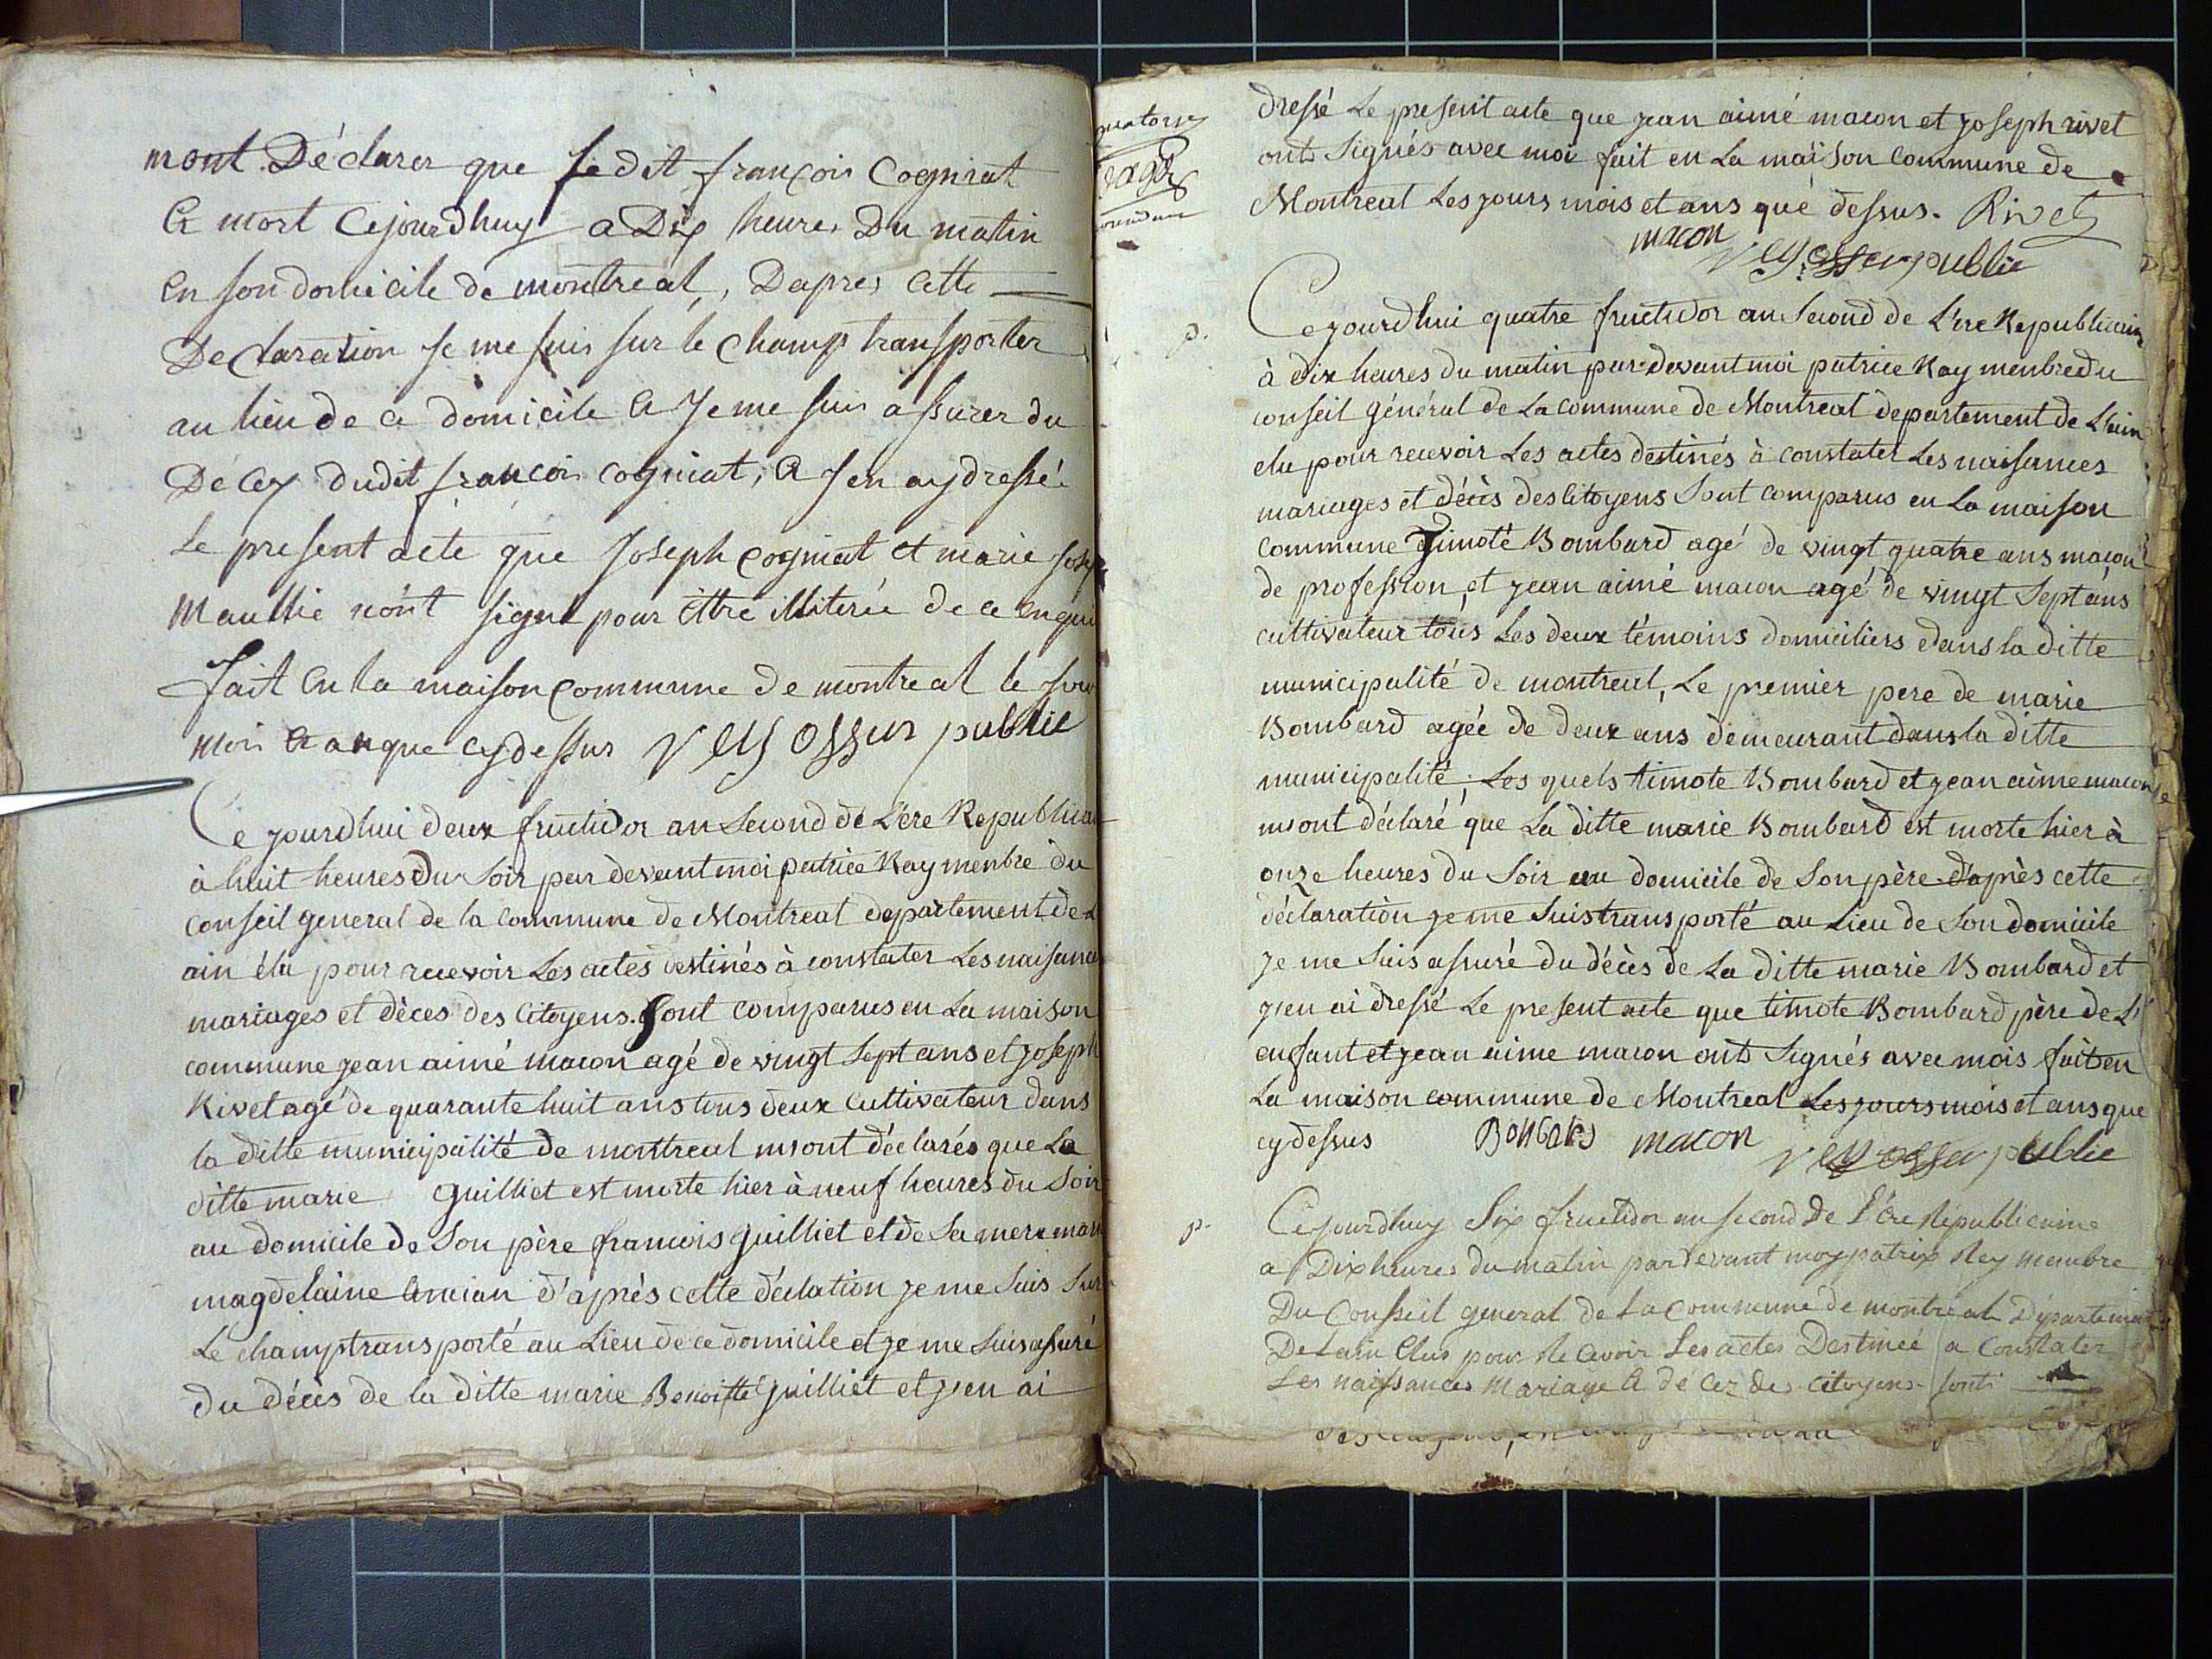 mont Déclarer que ledit françois Cogniat
Et mort Cejourdhuy a Dix heures Du matin
en son domicile de montreal, Dapres Cette
Declaration Je me suis sur le Champ transporter
au lieu de ce domicile et Je me suis assurer du
Décey dudit françois cogniat, et J'en ay dressé
Le present acte que Joseph cogniat et marie
Maullie nónt signé pour être illiterée de ce enqui
Fait en la maison commune de montreal le
mois et an que cydessus Rey officier public
Ce jourdhui deux fructidor an second de L'ère Republicai
à huit heures du soir par devant moi patrice Ray menbre du
conseil general de la commune de Montreal departement de L
ain élu pour recevoir Les actes destinés à constater Les naisance
mariages et dèces des Citoyens. Sont comparus en La maison
commune jean aimé macon agé de vingt sept ans et joseph
Rivet agé de quarante huit ans tous deux cultivateur dans
la ditte municipalité de montreal mont déclarés que La
ditte marie Guilliet est morte hier à neuf heures du soir
au domicile de son père francois guilliet et de sa mere
magdelaine d'après cette déclation je me suis sur
Le champ transporté au Lieu de ce domicile et je me suis assuré
du décès de la ditte marie Benoitte guilliet et j'en ai
dressé Le present acte que jean aimé macon et joseph rivet
onts signés avec moi fait en La maison commune de
Montreal Les jours mois et ans que dessus. Rivet
macon
Rey officier public
p.
Ce jourdhui quatre fructidor an second de L'ere Republicain
à dix heures du matin par devant moi patrice Ray menbre du
conseil général de La commune de Montreal departement de L'ain
elu pour recevoir Les actes destinés à constater Les naisances
mariages et décès des Citoyens Sont comparus en La maison
commune Timoté Bombard agé de vingt quatre ans macon
de profession, et jean aimé macon agé de vingt sept ans
cultivateur tous Les deux témoins domiciliers dans la ditte
municipalité de montreal, Le premier pere de marie
Bombard agée de deux ans demeurant dans la ditte
municipalité; Les quels timote Bombard et jean aime macon
m'ont déclaré que La ditte marie Bombard est morte hier à
onze heures du soir au domicile de Son père d'après cette
déclaration je me suis transporté au Lieu de Son domicile
je me suis assuré du décès de La ditte marie Bombard et
j'en ai dressé Le present acte que timote Bombard père de L'
enfant et jean aime macon onts signés avec mois fait en
La maison commune de Montreal Les jours mois et ans que
cy dessus Bonbard macon Rey officier public
p.
Cejourdhuy Six fructidor an second De L'ére Républicaine
a Dix heures du matin pardevant moy patrix Rey membre
Du Conseil general de La Commune de montreal Département
De Lain Elus pour Recevoir Les actes Destinéé a Constater
Les naissances Mariage et décez des citoyens sont